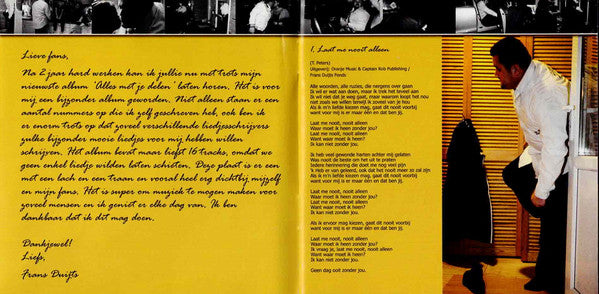 Lieve fans,
Na 2 jaar hard werken kan ik jullie nu met trots mijn
nieuwste album 'Alles met je delen' laten horen. Het is voor
mij een bijzonder album geworden. Niet alleen staan er een
aantal nummers op die ik zelf geschreven heb, ook ben ik
er enorm trots op dat zoveel verschillende liedjesschrijvers
zulke bijzonder mooie liedjes voor mij hebben willen
schrijven. Het album bevat maar liefst 16 tracks, omdat we
geen enkel liedje wilden laten schieten. Deze plaat is er een
met een lach en een traan en vooral heel erg dichtbij mijzelf
en mijn fans. Het is super om muziek te mogen maken voor
zoveel mensen en ik geniet er elke dag van. Ik ben
dankbaar dat ik dit mag doen.
Dankjewel!
Liefs,
Frans Duijts
1. Laat me nooit alleen
(T. Peters)
Uitgeverij: Oranje Music & Captain Rob Publishing /
Frans Duijts Fonds
Alle woorden, alle ruzies, die nergens over gaan
Ik wil er wat aan doen, maar ik trek het teveel aan
Ik wil niet dat je weg gaat, maar waarom loopt het nou
net zoals wij willen terwijl ik zoveel van je hou
Als ik m'n liefde kiezen mag, gaat dit nooit voorbij
want voor mij is er maar één en dat ben jij.
Laat me nooit, nooit alleen
Waar moet ik heen zonder jou?
Laat me nooit, nooit alleen
Want waar moet ik heen?
Ik kan niet zonder jou.
Ik heb veel gewonde harten achter mij gelaten
Was nooit de beste om het uit te praten
Iedere herinnering die doet me nog veel pijn
'k Heb er van geleerd, ook dat het nooit meer zo zal zijn
Als ik m'n liefde kiezen mag, gaat dit nooit voorbij
want voor mij is er maar één en dat ben jij.
Laat me nooit, nooit alleen
Waar moet ik heen zonder jou?
Laat me nooit, nooit alleen
Want waar moet ik heen?
Ik kan niet zonder jou.
Als ik ervoor mag kiezen, gaat dit nooit voorbij
want voor mij is er maar één en dat ben jij.
Laat me nooit, nooit alleen
Waar moet ik heen zonder jou?
Ik vraag je, laat me nooit, nooit alleen
Want waar moet ik heen?
Ik kan niet zonder jou.
Geen dag ooit zonder jou.